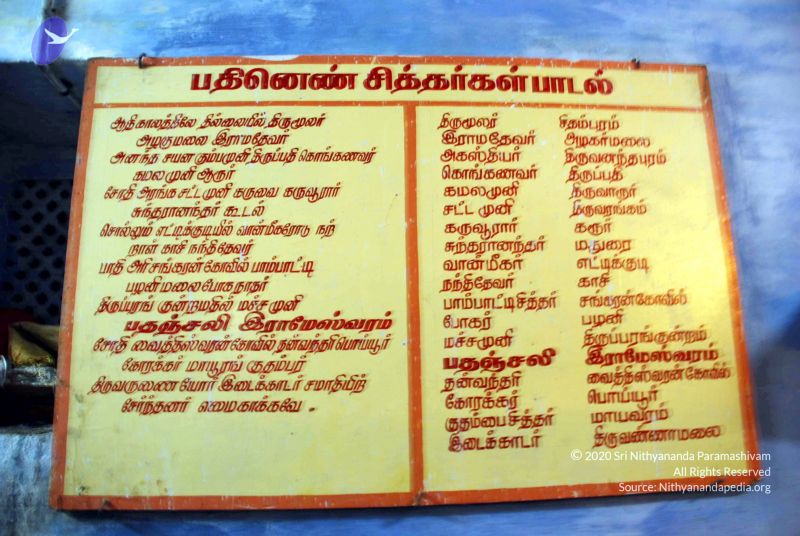 பதினெண் சித்தர்கள் பாடல்
ஆதி காலத்திலே தில்லையில் திருமூலர்
அழகுமலை இராமதேவர்
அனந்த சயன கும்பமுனி திருப்பதி கொங்கணவர்
கமலமுனி ஆரூர்
சோதி அரங்க சட்டமுனி கருவை கருவூரார்
சுந்தரானந்தர் கூடல்
சொல்லும் எட்டிக்குடியில் வான்மீகரோடு நற்
நாள் காசி நந்திதேவர்
பாதி அரி சங்கரன்கோவில் பாம்பாட்டி
பழனி மலை போகநாதர்
திருப்பரங் குன்றமதில் மச்சமுனி
பதஞ்சலி இராமேஸ்வரம்
சோதி வைத்தீஸ்வரன்கோவில் தன்வந்திரி பொய்யூர்
கோரக்கர் மாயூரங் குதம்பர்
திருவருணை யோர் இடைக்காடர் சமாதியிற்
சேர்ந்தனர் எமைகாக்கவே .
திருமூலர் சிதம்பரம்
இராமதேவர் அழகர்மலை
அகஸ்தியர் திருவனந்தபுரம்
கொங்கணவர் திருப்பதி
கமலமுனி திருவாரூர்
சட்ட முனி திருவரங்கம்
கருவூரார் கரூர்
சுந்தரானந்தர் மதுரை
வான்மீகர் எட்டிக்குடி
நந்திதேவர் காசி
பாம்பாட்டிசித்தர் சங்கரன்கோவில்
போகர் பழனி
மச்சமுனி திருப்பரங்குன்றம்
பதஞ்சலி இராமேஸ்வரம்
தன்வந்தர் வைத்தீஸ்வரன்கோவில்
கோரக்கர் பொய்யூர்
குதம்பைசித்தர் மாயவரம்
இடைக்காடர் திருவண்ணாமலை
© 2020 Sri Nithyananda Paramashivam
All Rights Reserved
Source: Nithyanandapedia.org